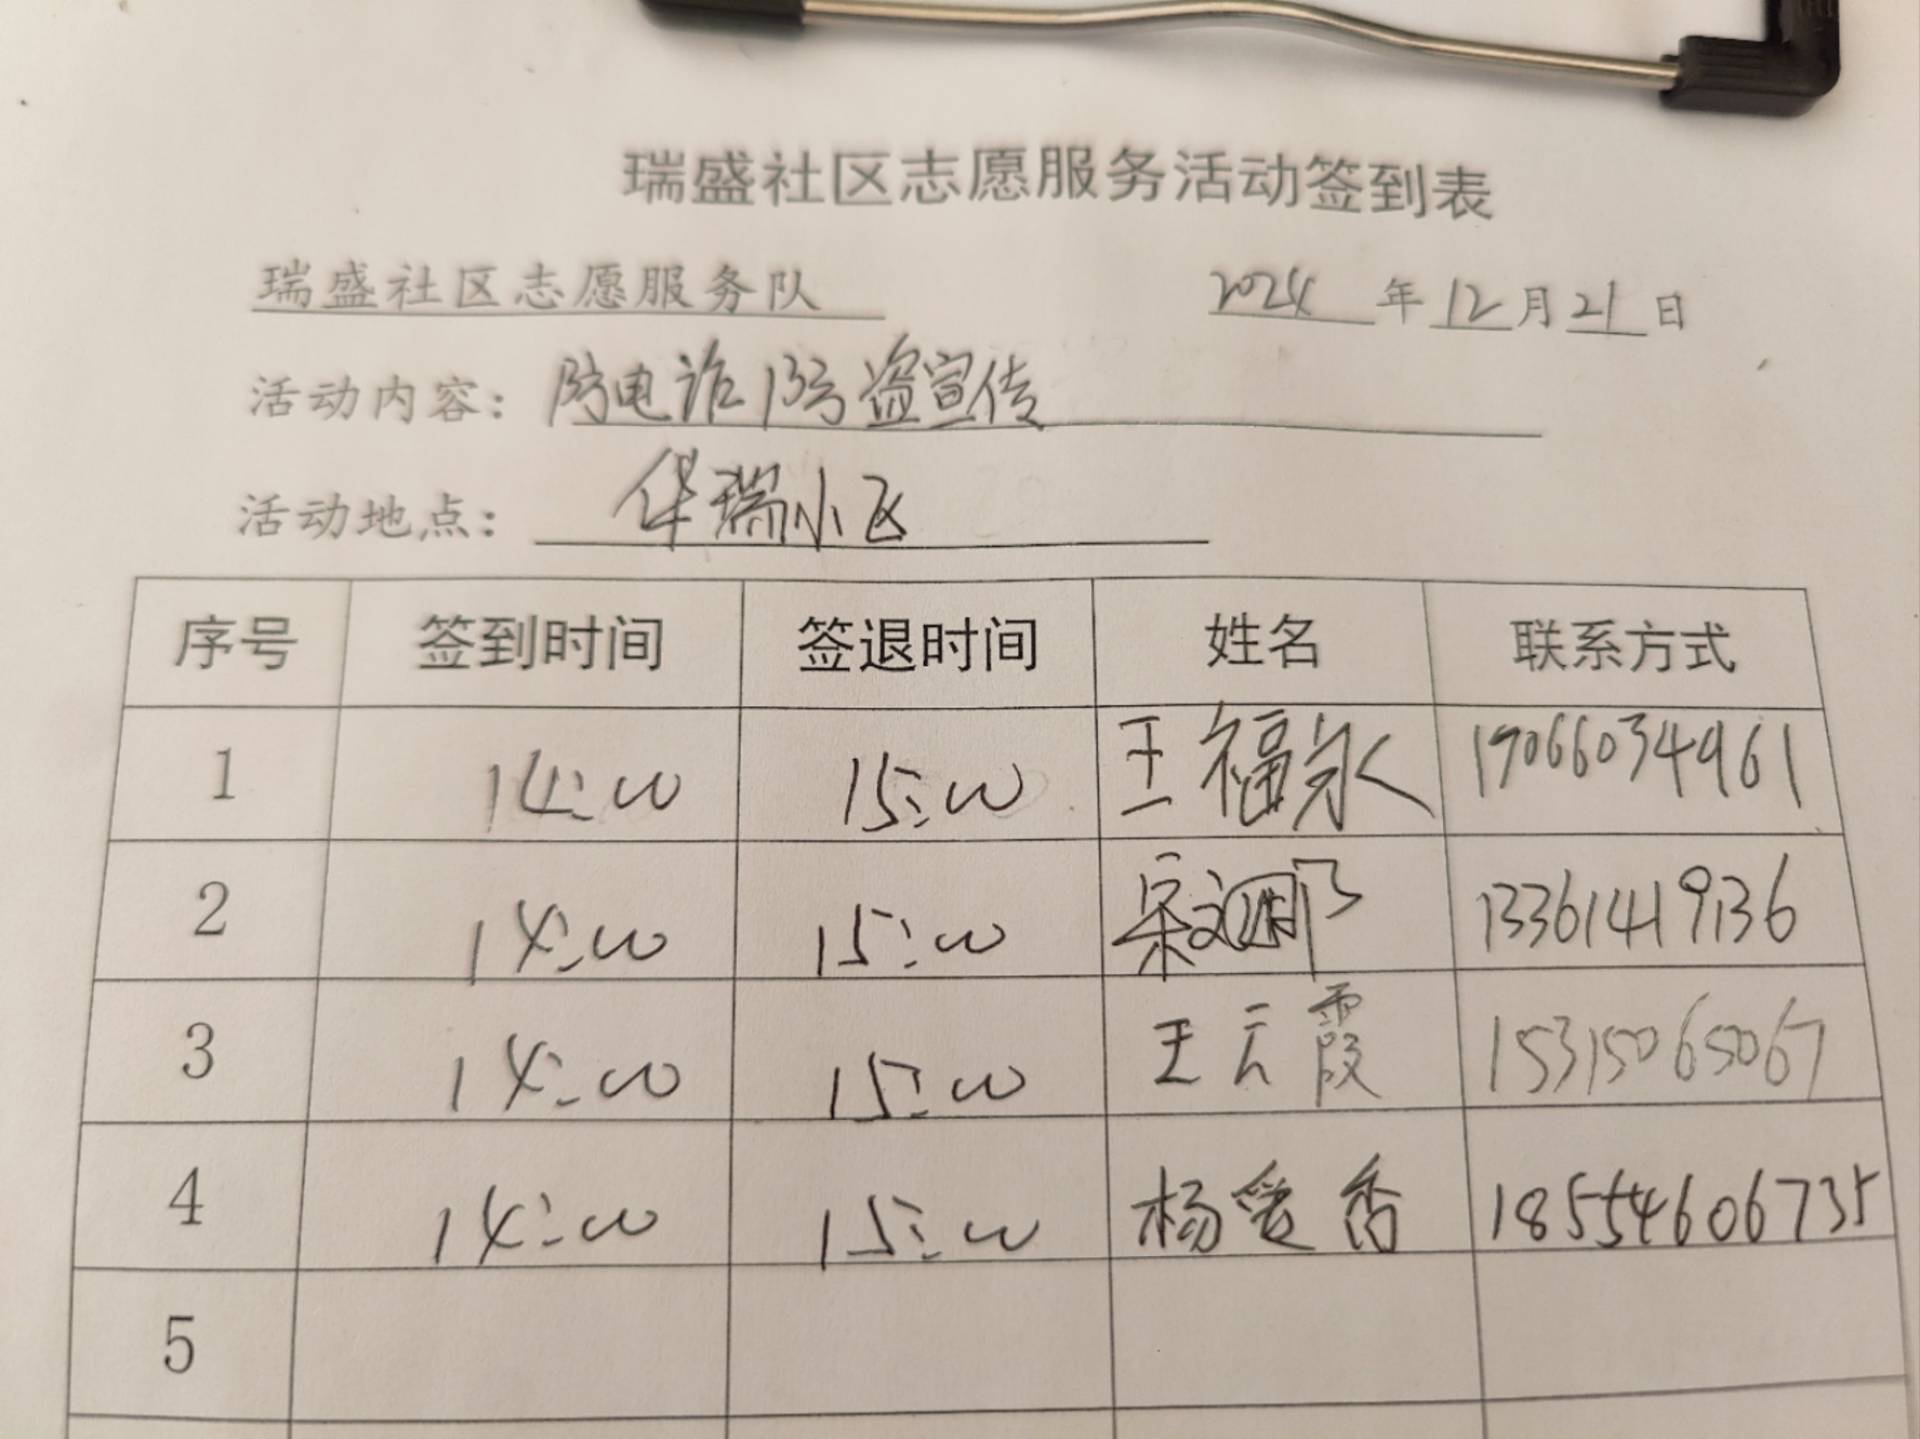 瑞盛社区志愿服务活动签到表
瑞盛社区志愿服务队 2024年12月21日
活动内容：防电诈防盗宣传
活动地点：华瑞小区
序号 签到时间 签退时间 姓名 联系方式
1 14:00 15:00 王福泉 19066034961
2 14:00 15:00 宋 13361419136
3 14:00 15:00 王云霞 15315065067
4 14:00 15:00 杨爱香 18554606735
5